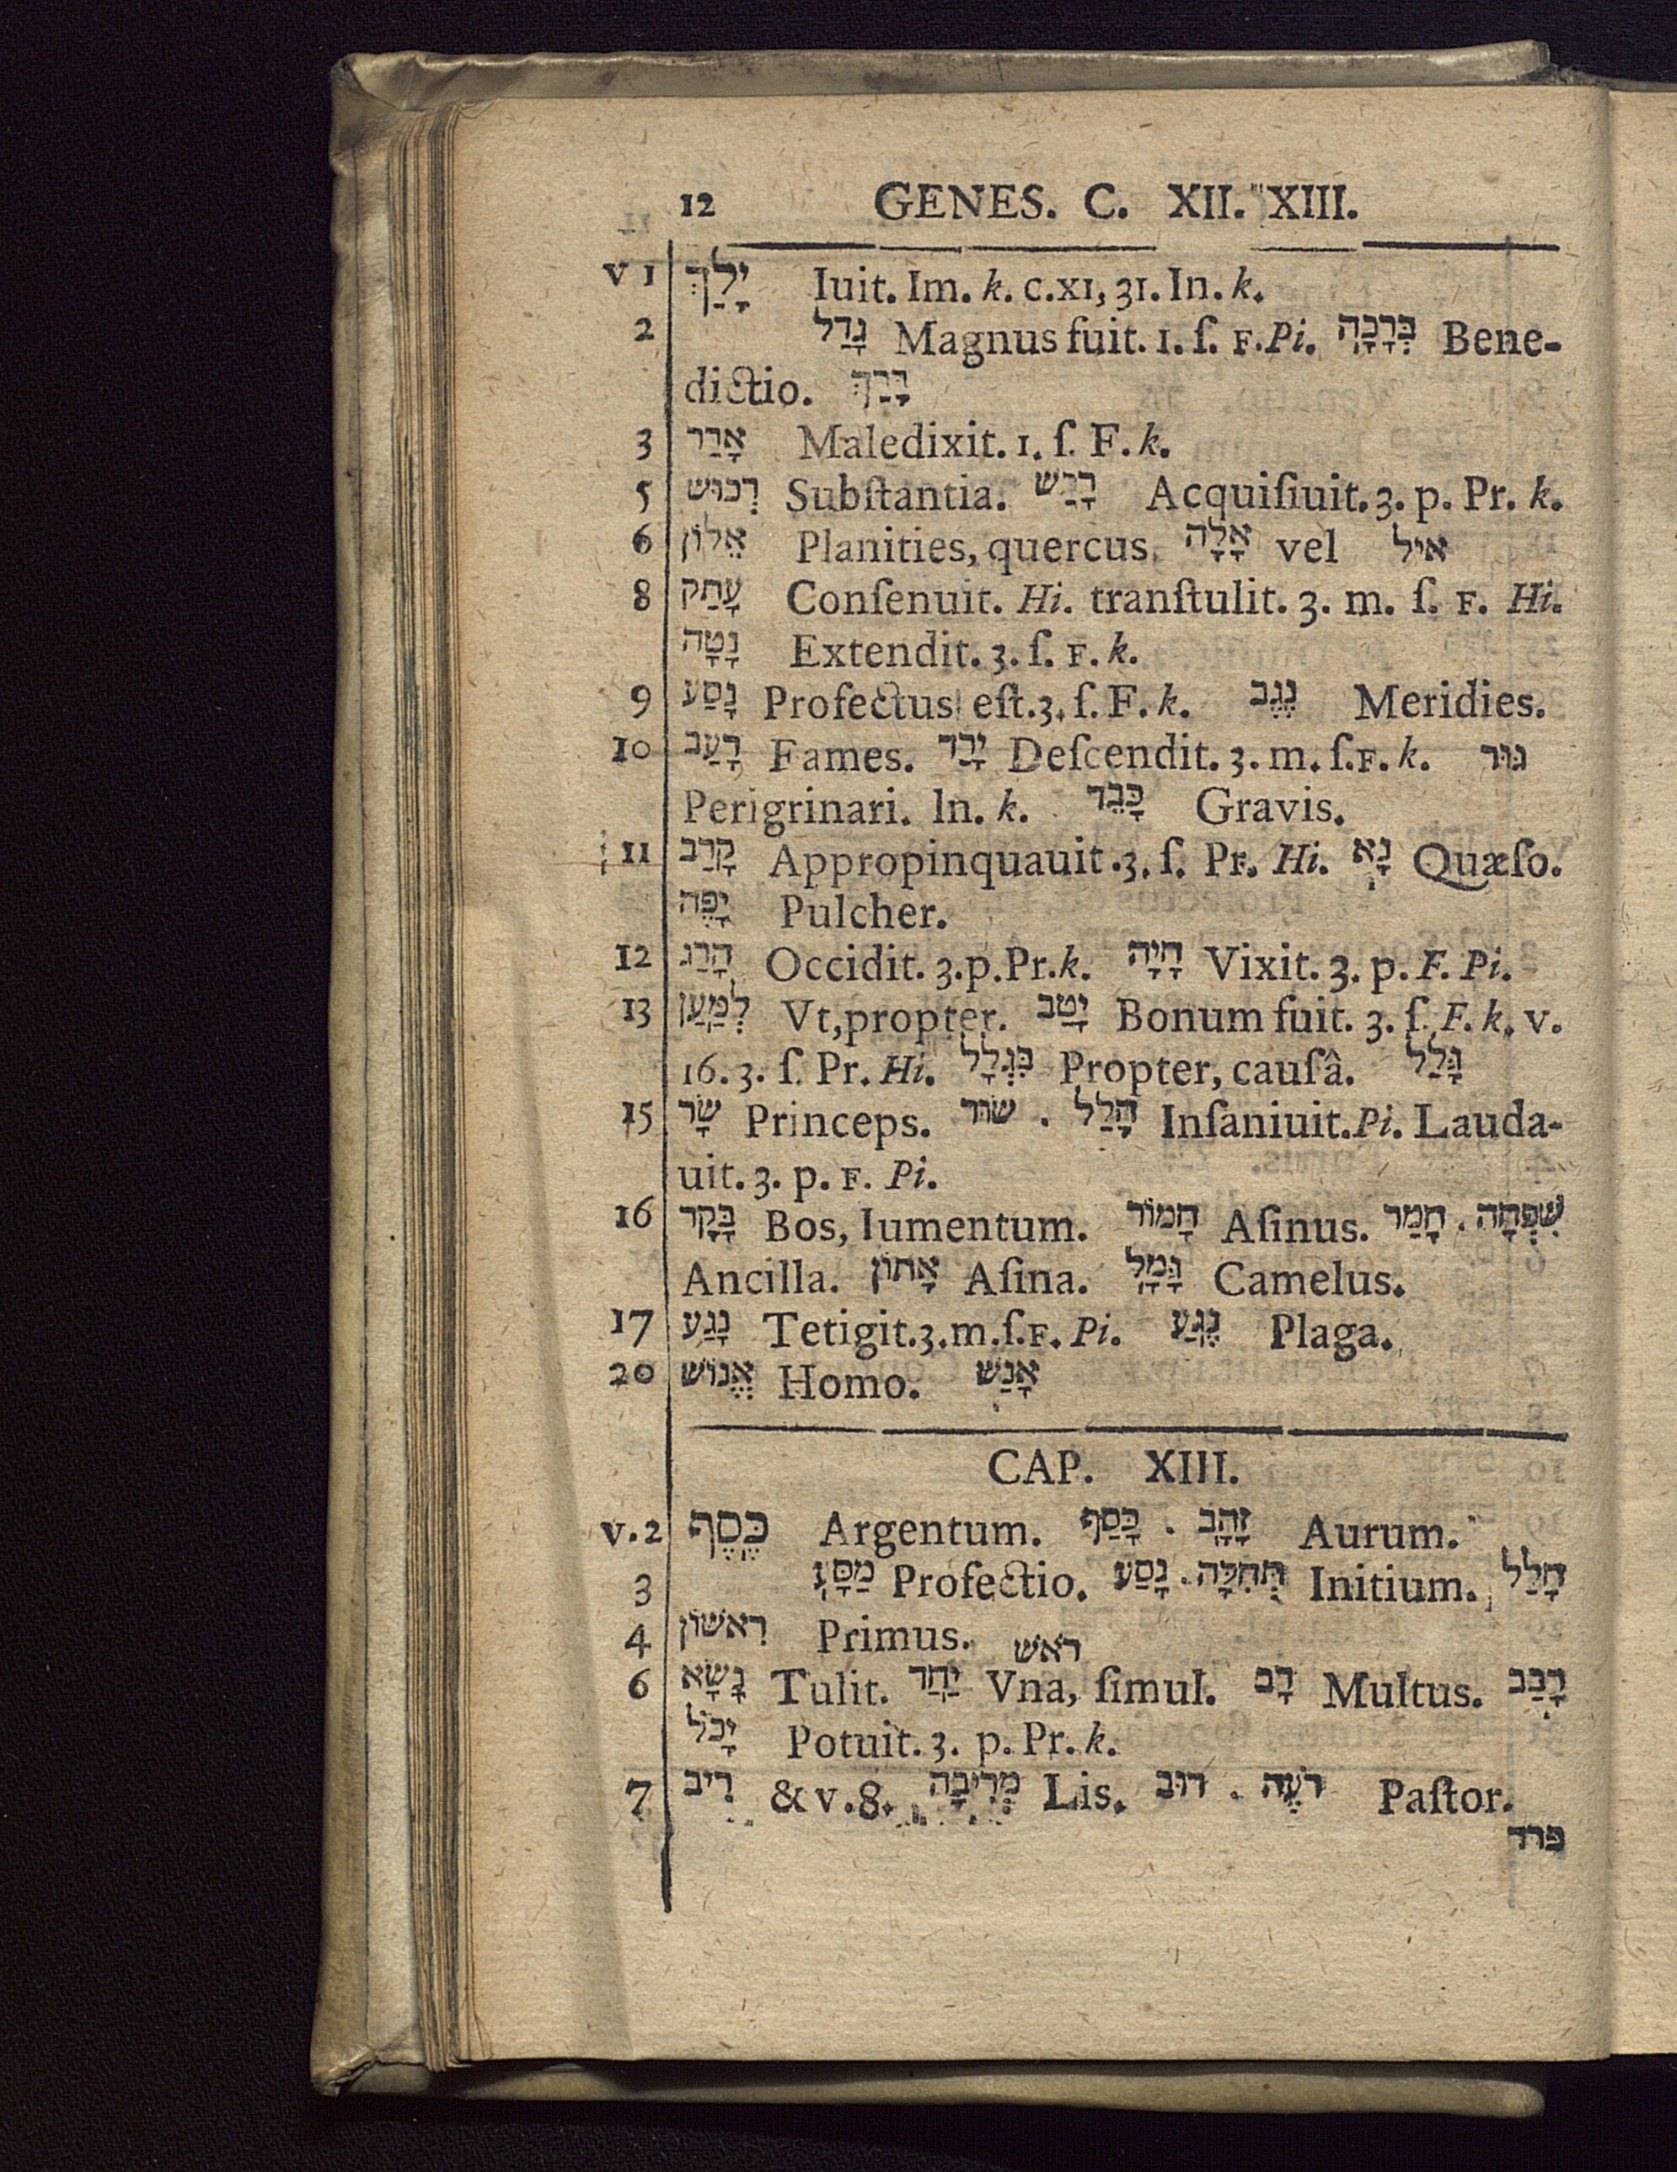 12 GENES. C. XII. XIII.
v 1 יָלַךְ Iuit. Im. k. c.xi, 31. In. k.
2 גָדַל Magnus fuit. 1. ſ. F. Pi. בְּרָכָה Bene-
dictio. בָּרַךְ
3 אָרַר Maledixit. 1. ſ. F. k.
5 רְכוּש Subſtantia. רָכַש Acquiſiuit. 3. p. Pr. k.
6 אֵלוֹן Planities, quercus. אָלָה vel איל
8 עָתַק Conſenuit. Hi. tranſtulit. 3. m. ſ. F. Hi.
נָטָה Extendit. 3. ſ. F. k.
9 נָסַע Profectus eſt. 3. ſ. F. k. נֶגֶב Meridies.
10 רָעַב Fames. יָרַד Deſcendit. 3. m. ſ. F. k. גּוּר
Perigrinari. In. k. כָּבֵד Gravis.
11 קָרַב Appropinquauit. 3. ſ. Pr. Hi. נָא Quæſo.
יָפֶה Pulcher.
12 הָרַג Occidit. 3. p. Pr. k. חָיָה Vixit. 3. p. F. Pi.
13 לְמַעַן Vt, propter. יָטַב Bonum fuit. 3. ſ. F. k. v.
16. 3. ſ. Pr. Hi. בִּגְלָל Propter, cauſâ. גָּלַל
15 שָׂר Princeps. שׂוּר . הָלַל Inſaniuit. Pi. Lauda-
uit. 3. p. F. Pi.
16 בָּקָר Bos, Iumentum. חָמוֹר Aſinus. חָמַר . שִׁפְחָה
Ancilla. אָתוֹן Aſina. גָּמָל Camelus.
17 נָגַע Tetigit. 3. m. ſ. F. Pi. נֶגַע Plaga.
20 אֱנוֹשׁ Homo. אָנַשׁ
CAP. XIII.
v. 2 כֶּסֶף Argentum. כָּסַף . זָהָב Aurum.
3 מַסָּע Profectio. נָסַע . תְּחִלָּה Initium. חָלַל
4 רִאשׁוֹן Primus. ראשׁ
6 נָשָׂא Tulit. יַחַד Vna, ſimul. רָב Multus. רָבַב
יָכֹל Potuit. 3. p. Pr. k.
7 רִיב & v. 8. מְרִיבָה Lis. רוּב . רֹעֶה Paſtor.
פרד